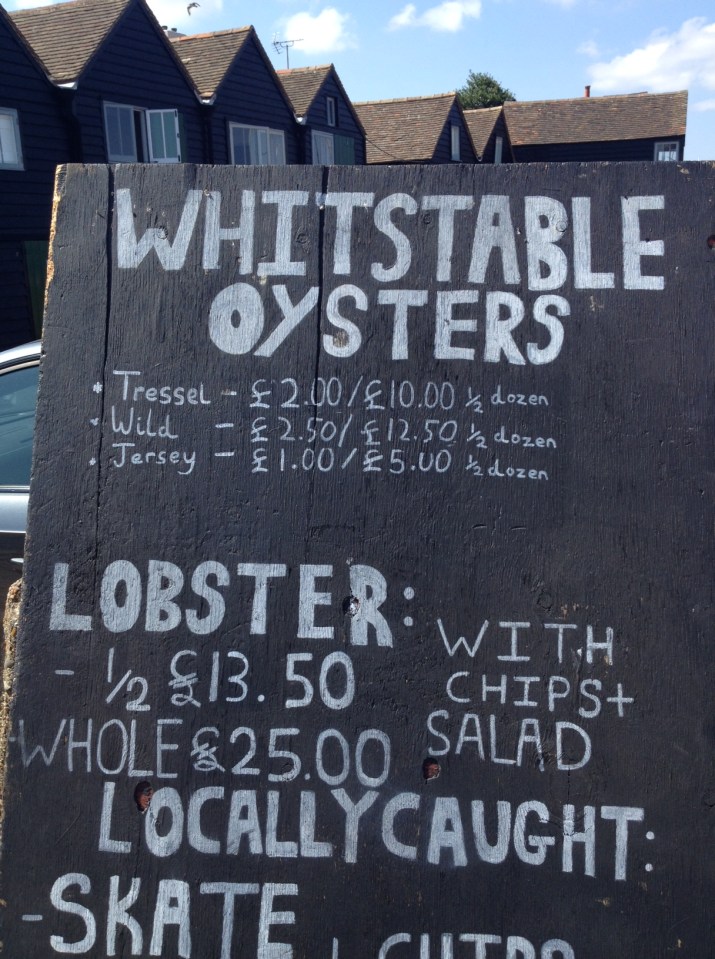 WHITSTABLE
OYSTERS
* Tressel - £2.00/£10.00 ½ dozen
* Wild - £2.50/£12.50 ½ dozen
* Jersey - £1.00/£5.00 ½ dozen
LOBSTER:
- ½ £13.50
WHOLE £25.00
WITH
CHIPS+
SALAD
LOCALLY CAUGHT:
- SKATE
CHIPS